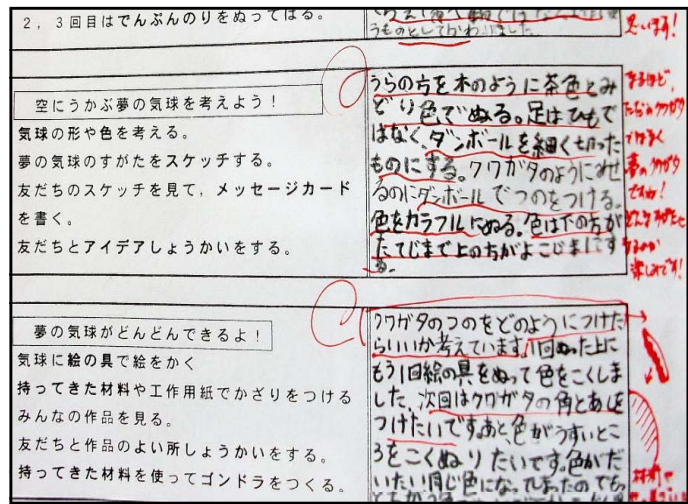 2，3回目はでんぷんのりをぬってはる。
うものとしてかわりました。
思います！
空にうかぶ夢の気球を考えよう！
気球の形や色を考える。
夢の気球のすがたをスケッチする。
友だちのスケッチを見て，メッセージカード
を書く。
友だちとアイデアしょうかいをする。
うらの方を木のように茶色とみ
どり色でぬる。足はひもで
はなく、ダンボールを細く切った
ものにする。クワガタのようにみせ
るのにダンボールでつのをつける。
色をカラフルにぬる。色は下の方が
たてじまで上の方がよこじまにす
る。
なるほど、
ただのクワガタ
ではなく
夢のクワガタ
ですね！
楽しみです！
夢の気球がどんどんできるよ！
気球に絵の具で絵をかく
持ってきた材料や工作用紙でかざりをつける
みんなの作品を見る。
友だちと作品のよい所しょうかいをする。
持ってきた材料を使ってゴンドラをつくる。
クワガタのつのをどのようにつけた
らいいか考えています。1回ぬった上に
もう1回絵の具をぬって色をこくしま
した。次回はクワガタの角とあしを
つけたいです。あと色がうすいとこ
ろをこくぬりたいです。色がだ
いたい同じ色になってしまったのでも
材料や